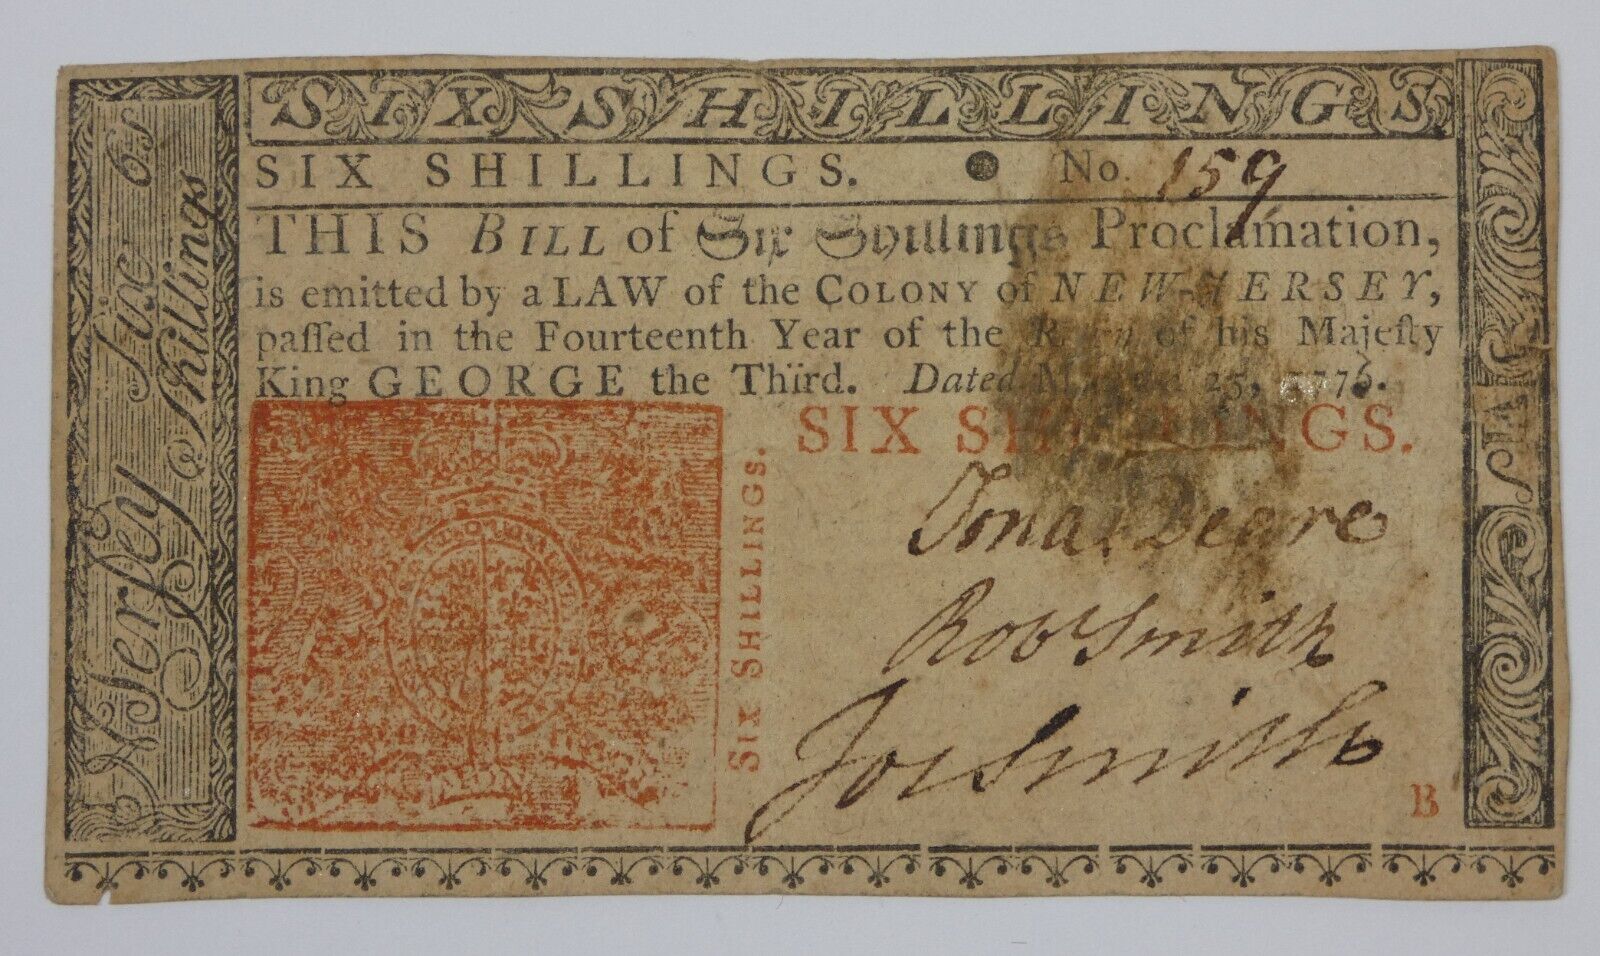 SIX SHILLINGS
SIX SHILLINGS. No. 159
THIS BILL of Six Shillings Proclamation,
is emitted by a LAW of the COLONY of NEW-JERSEY,
paſſed in the Fourteenth Year of the Reign of his Majeſty
King GEORGE the Third. Dated March 25, 1776.
SIX SHILLINGS.
SIX SHILLINGS.
Jonan Deare
Robt Smith
Jos Smith
B
N Jerſey Six Shillings 6s
VI S